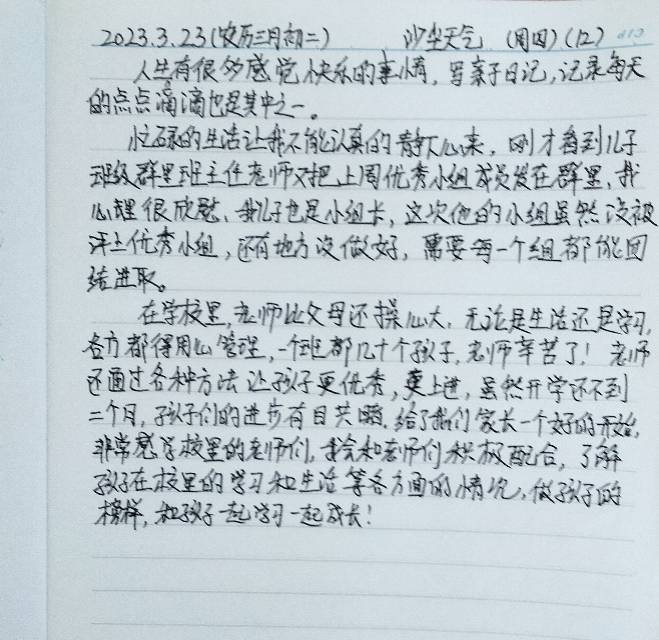 2023.3.23(农历三月初二) 沙尘天气 (周四)(12)
人生有很多感觉快乐的事情,写亲子日记,记录每天
的点点滴滴也是其中之一。
忙碌的生活让我不能认真的静下心来,刚才看到儿子
班级群里班主任老师又把上周优秀小组成员发在群里,我
心里很欣慰、我儿子也是小组长,这次他的小组虽然没被
评上优秀小组,还有地方没做好,需要每一个组都能团
结进取。
在学校里,老师比父母还操心大,无论是生活还是学习,
各方都得用心管理,一个班都几十个孩子,老师辛苦了!老师
还通过各种方法让孩子更优秀,更上进,虽然开学还不到
二个月,孩子们的进步有目共睹,给了我们家长一个好的开始,
非常感学校里的老师们,我会和老师们积极配合,了解
孩子在校里的学习和生活等各方面的情况,做孩子的
榜样,和孩子一起学习一起成长!